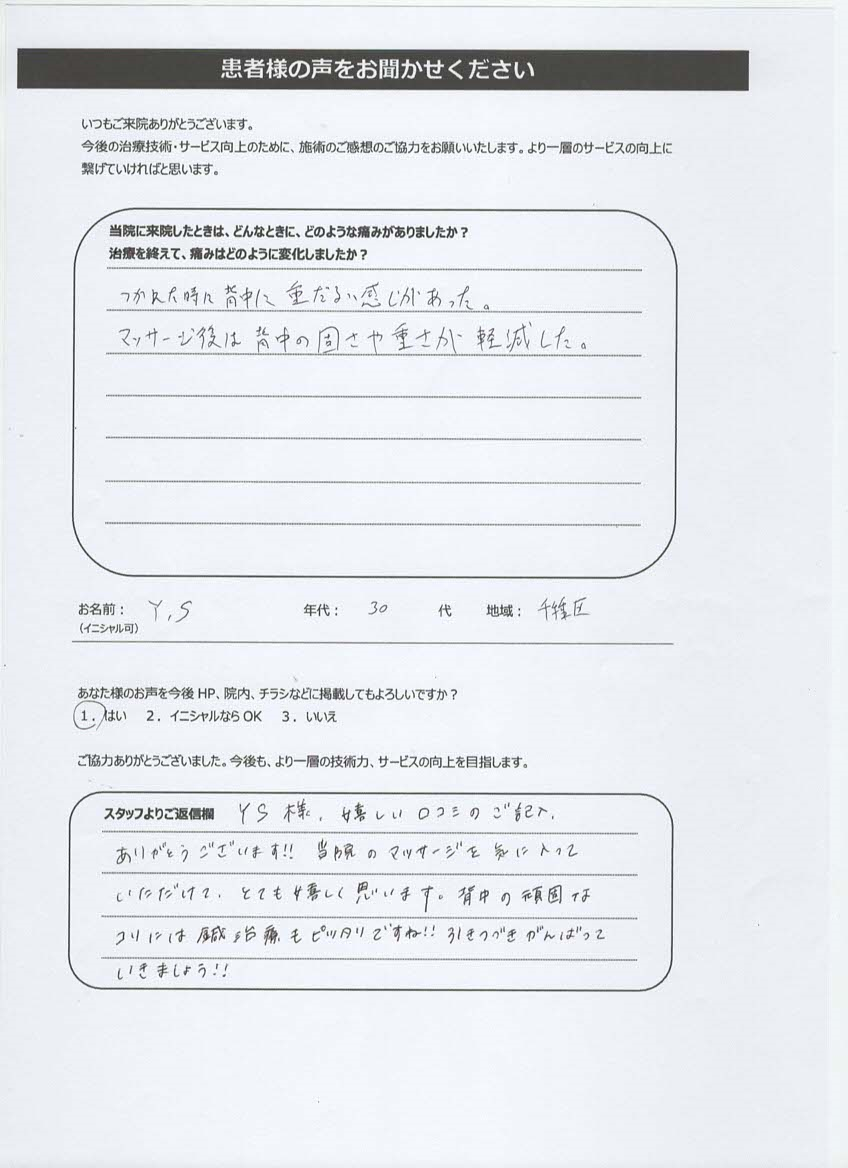 患者様の声をお聞かせください
いつもご来院ありがとうございます。
今後の治療技術・サービス向上のために、施術のご感想のご協力をお願いいたします。より一層のサービスの向上に
繋げていければと思います。
当院に来院したときは、どんなときに、どのような痛みがありましたか？
治療を終えて、痛みはどのように変化しましたか？
つかれた時に背中に重だるい感じがあった。
マッサージ後は背中の固さや重さが軽減した。
お名前： Y.S 年代： 30 代 地域： 千種区
（イニシャル可）
あなた様のお声を今後 HP、院内、チラシなどに掲載してもよろしいですか？
1．はい 2．イニシャルなら OK 3．いいえ
ご協力ありがとうございました。今後も、より一層の技術力、サービスの向上を目指します。
スタッフよりご返信欄 YS様、嬉しい口コミのご記入、
ありがとうございます!! 当院のマッサージを気に入って
いただけて、とても嬉しく思います。背中の頑固な
コリには鍼治療もピッタリですね!! 引きつづきがんばって
いきましょう!!